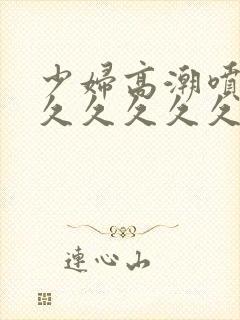 少婦高潮噴
久久久久久
連心山